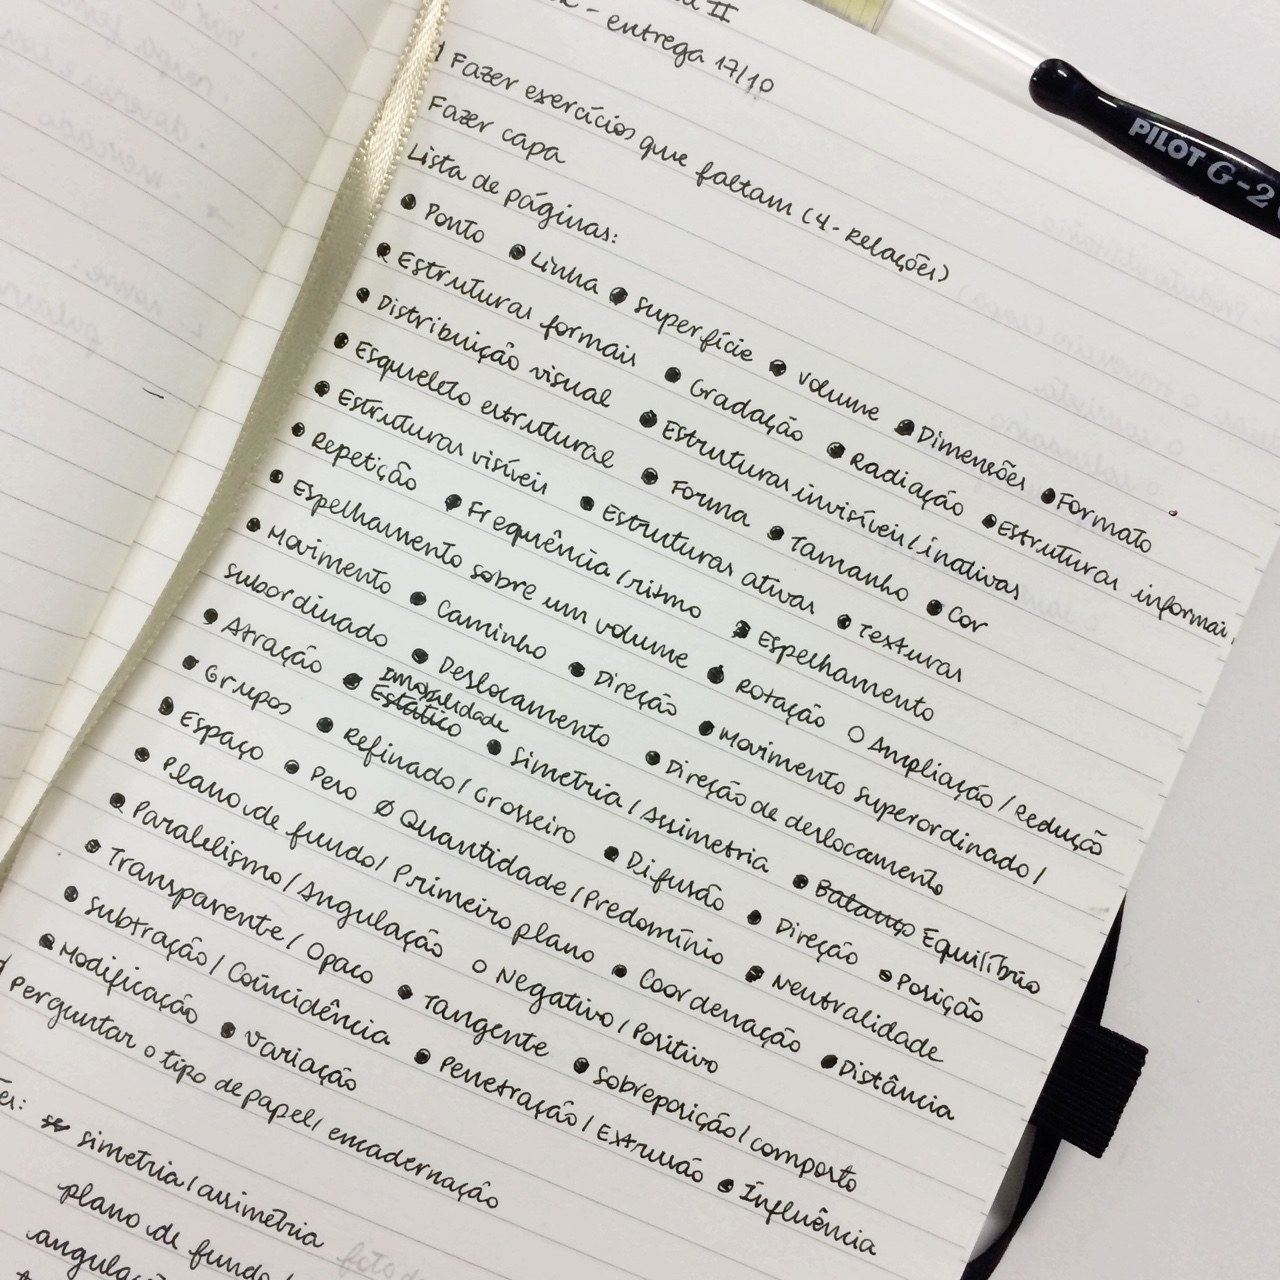 II
- entrega 17/10
Fazer exercícios que faltam (4 - Relações)
Fazer capa
Lista de páginas:
• Ponto • Linha • superfície • volume • Dimensões • Formato
• Estruturas formais • Gradação • Radiação • Estruturas informais
• Distribuição visual • Estruturas invisíveis/inativas
• Esqueleto estrutural • Forma • Tamanho • Cor
• Estruturas visíveis • Estruturas ativas • Texturas
• Repetição • Frequência/ritmo • Espelhamento
• Espelhamento sobre um volume • Rotação ○ Ampliação/Redução
• Movimento • Caminho • Direção • Movimento superordinado/
subordinado • Deslocamento • Direção de deslocamento
• Atração • Estático Imobilidade • Simetria/Assimetria • Balanço Equilíbrio
• Grupos • Refinado/Grosseiro • Difusão • Direção • Posição
• Espaço • Peso Ø Quantidade/Predomínio • Neutralidade
• Plano de fundo/Primeiro plano • Coordenação • Distância
• Paralelismo/Angulação ○ Negativo/Positivo
• Transparente/Opaco • Tangente • Sobreposição/composto
• Subtração/Coincidência • Penetração/Extrusão • Influência
• Modificação • Variação
Perguntar o tipo de papel/encadernação
simetria/assimetria
plano de fundo/
PILOT G-2